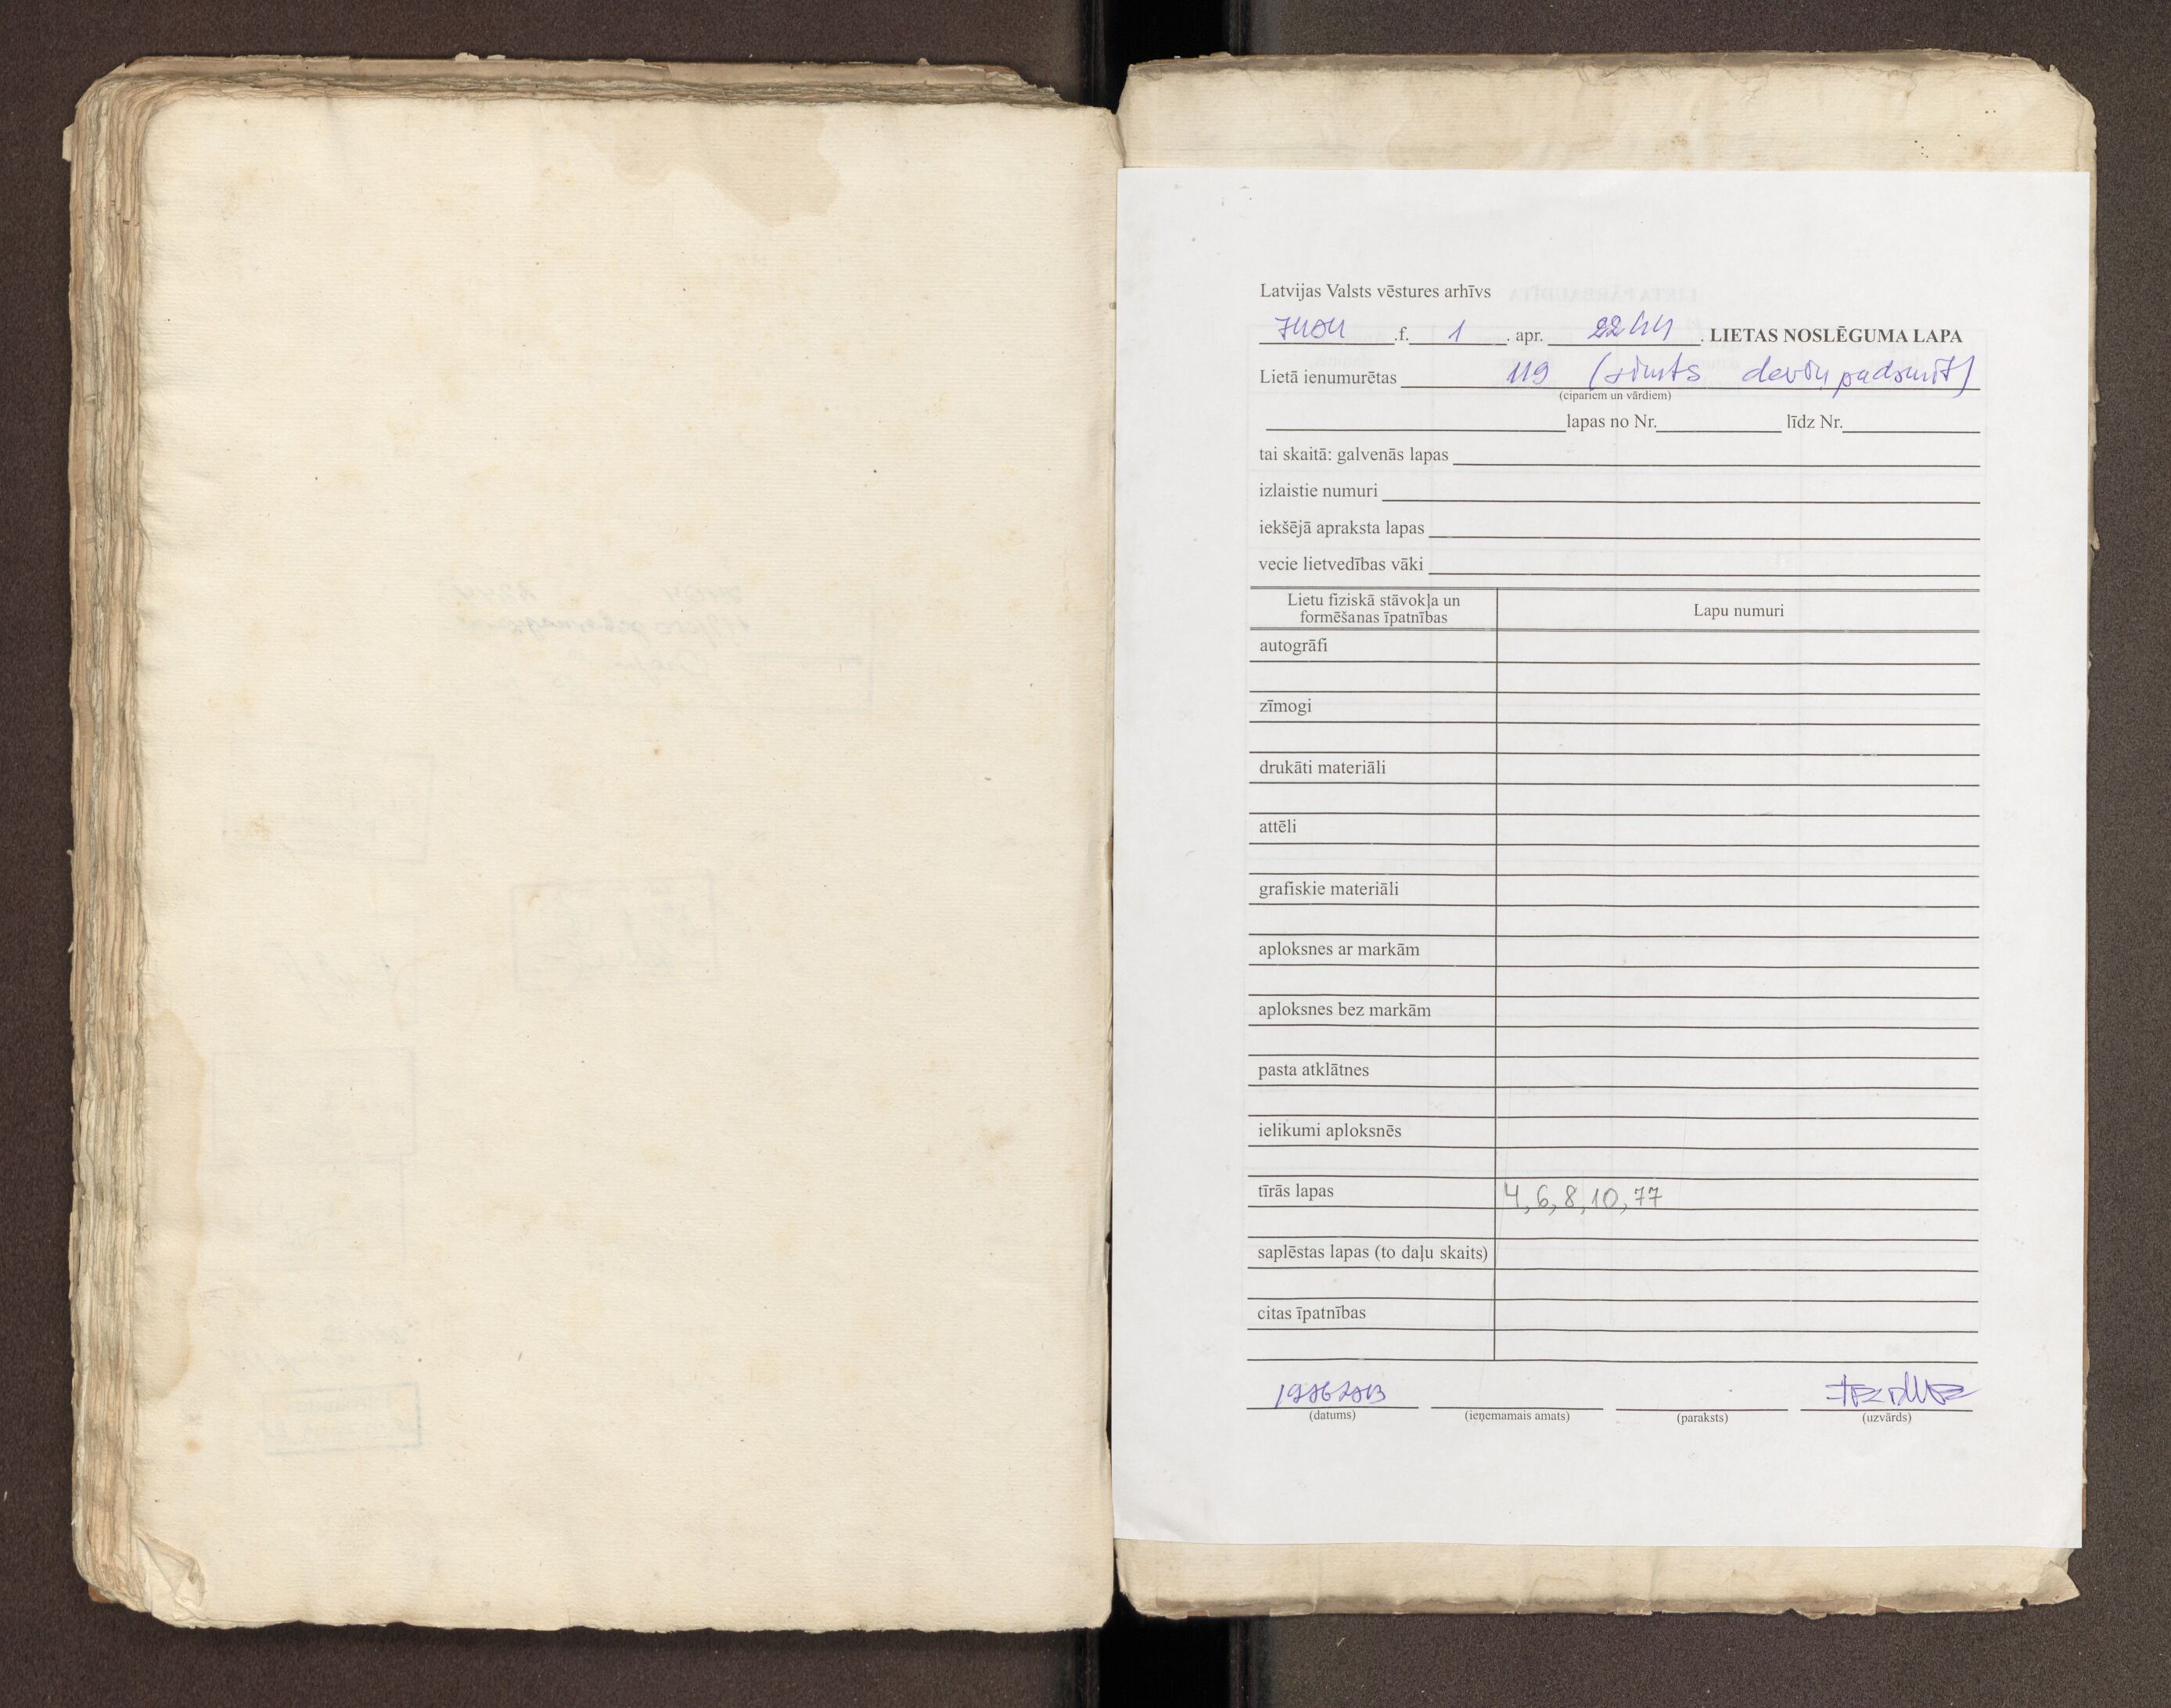 Latvijas Valsts vēstures arhīvs
7404 .f. 1 . apr. 2244 . LIETAS NOSLĒGUMA LAPA
Lietā ienumurētas 119 (simts deviņpadsmit)
(cipariem un vārdiem)
lapas no Nr. līdz Nr.
tai skaitā: galvenās lapas
izlaistie numuri
iekšējā apraksta lapas
vecie lietvedības vāki
Lietu fiziskā stāvokļa un
formēšanas īpatnības
Lapu numuri
autogrāfi
zīmogi
drukāti materiāli
attēli
grafiskie materiāli
aploksnes ar markām
aploksnes bez markām
pasta atklātnes
ielikumi aploksnēs
tīrās lapas 4, 6, 8, 10, 77
saplēstas lapas (to daļu skaits)
citas īpatnības
(datums) (ieņemamais amats) (paraksts) (uzvārds)